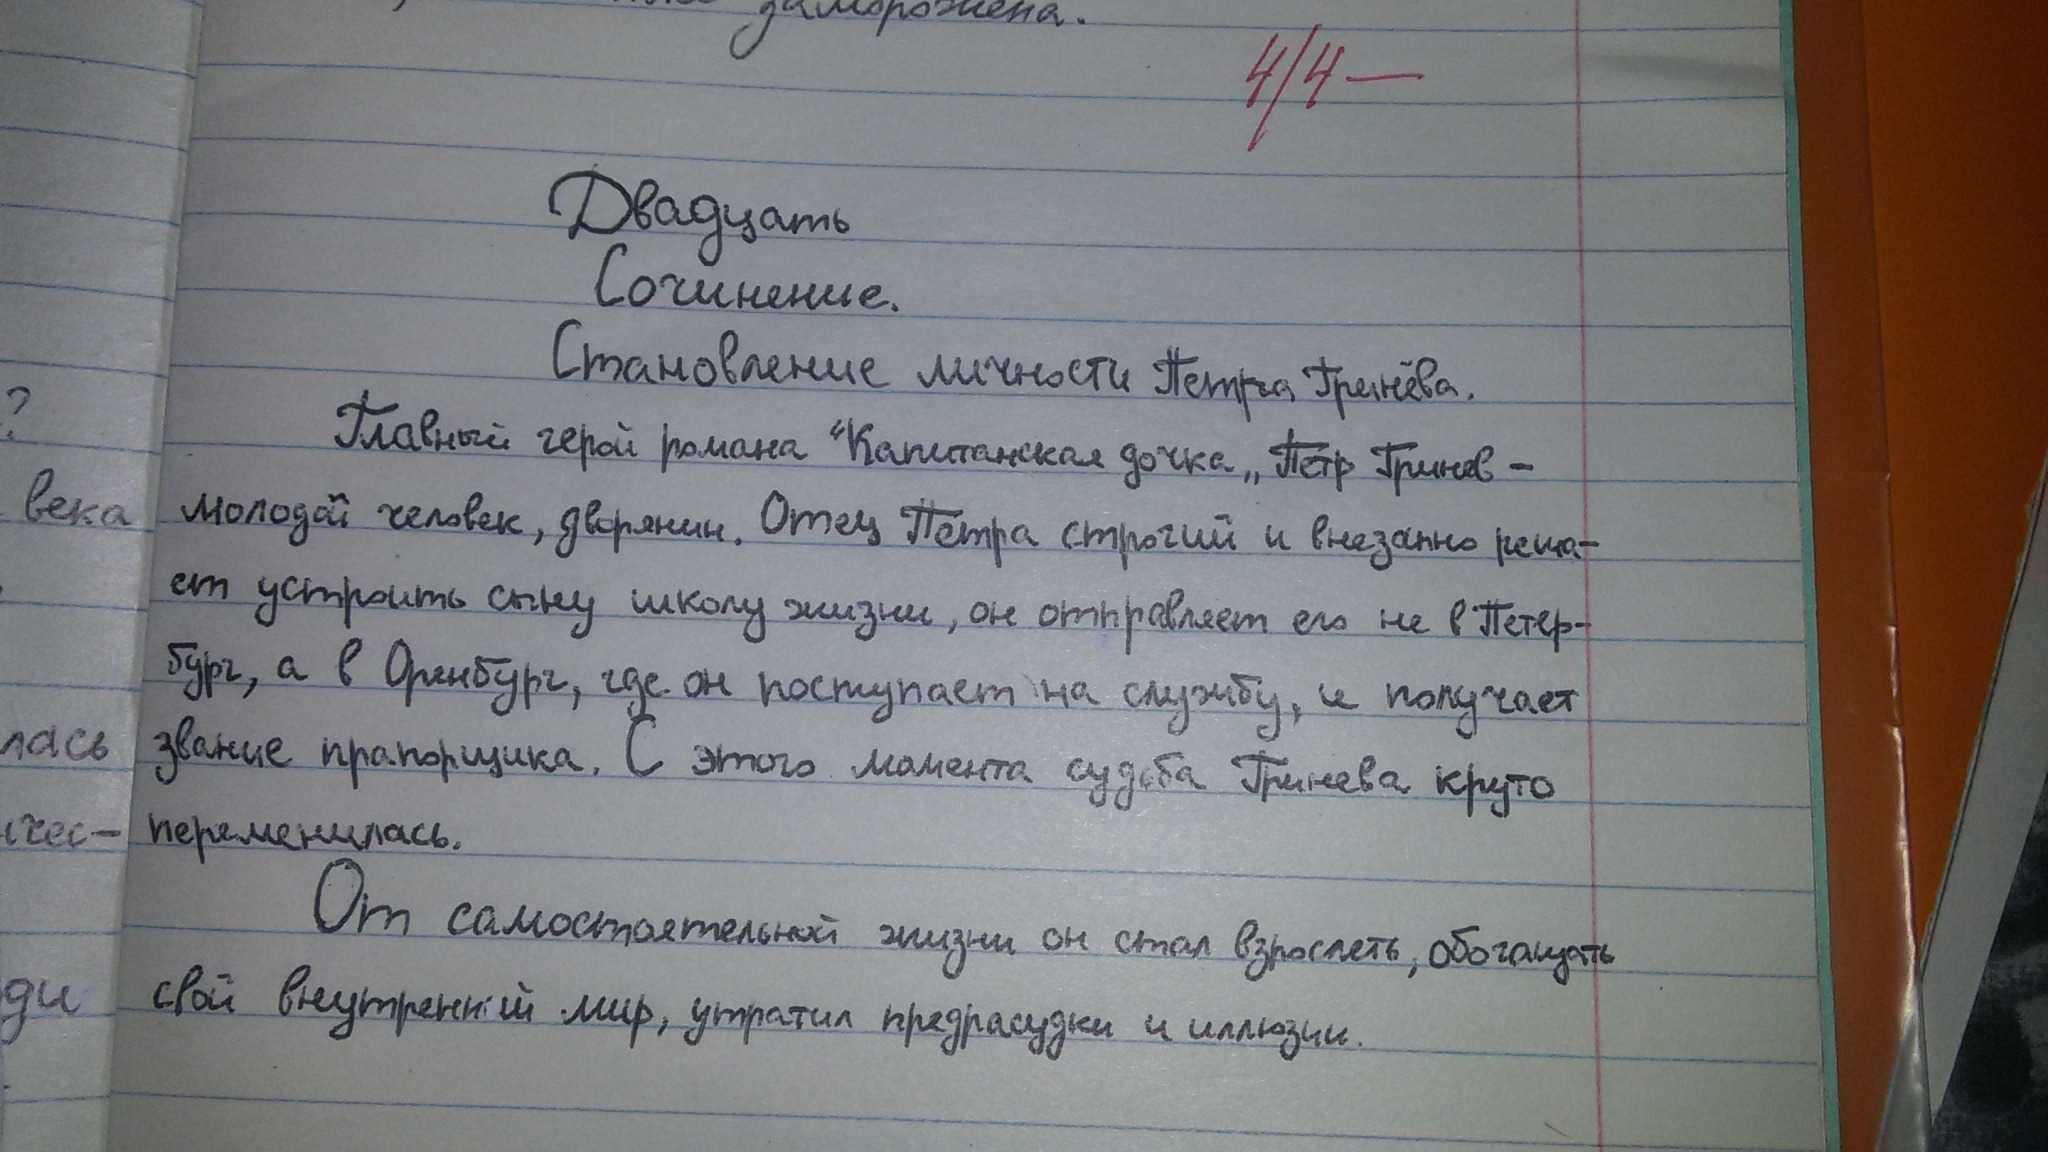 заморожена.
4/4—
Двадцать
Сочинение.
Становление личности Петра Гринёва.
?
Главный герой романа “Капитанская дочка„ Пётр Гринев –
века
молодой человек, дворянин. Отец Петра строгий и внезапно реша-
ет устроить сыну школу жизни, он отправляет его не в Петер-
бург, а в Оренбург, где он поступает на службу, и получает
лась
звание прапорщика. С этого момента судьба Гринева круто
чес-
переменилась.
От самостоятельной жизни он стал взрослеть, обогащать
ди
свой внутренний мир, утратил предрасудки и иллюзии.